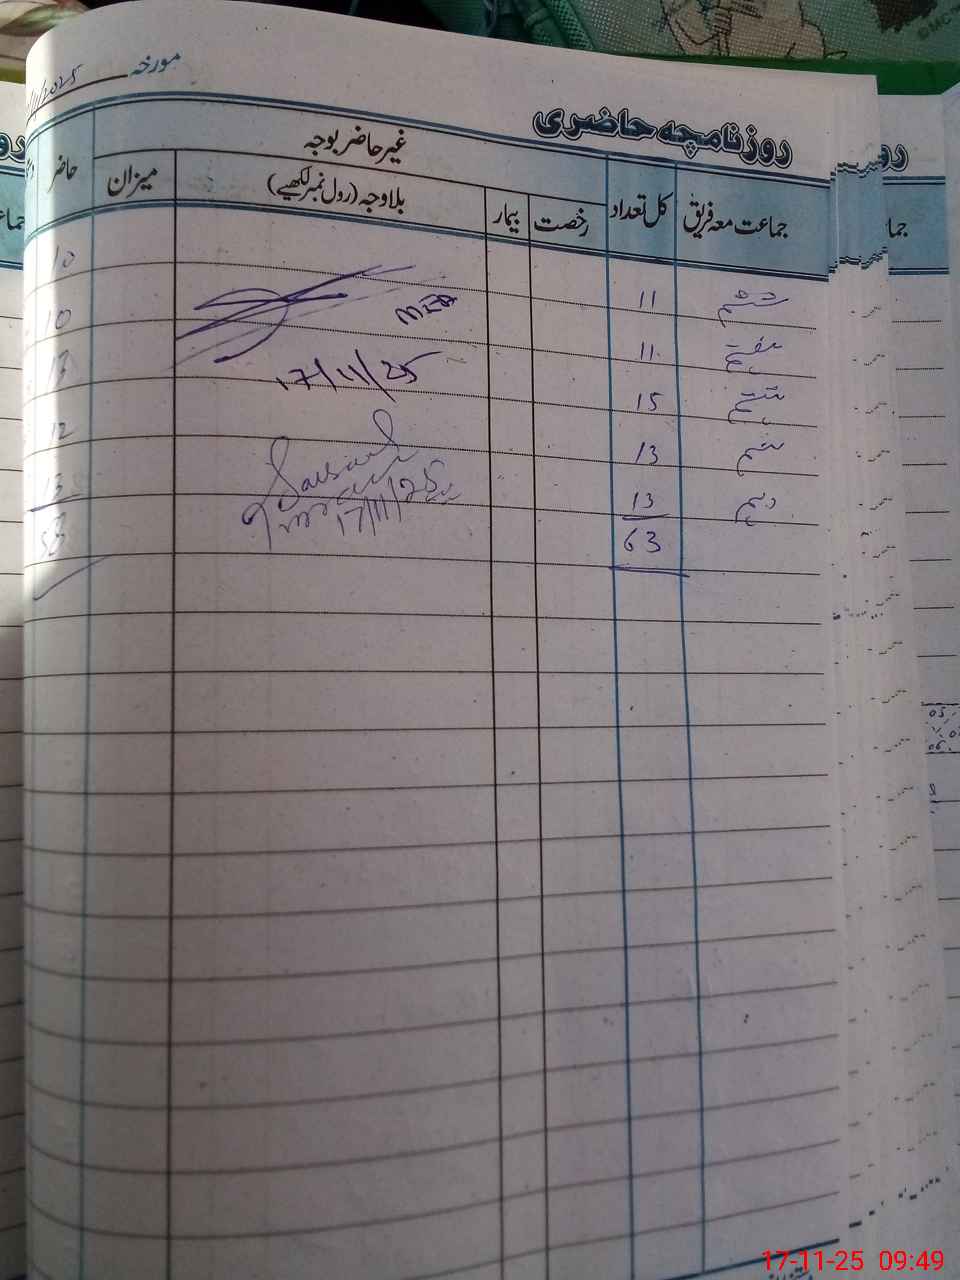 مورخہ /11/2025
روزنامچہ حاضری
جماعت معہ فریق کل تعداد غیر حاضر بوجہ حاضر
رخصت بیمار بلاوجہ (رول نمبر لکھیے) میزان
ششم 11 10
ہفتم 11 10
MEA
ہشتم 15
17/11/25
نہم 13 12
دہم 13 13
17/11/25
63 53
17-11-25 09:49